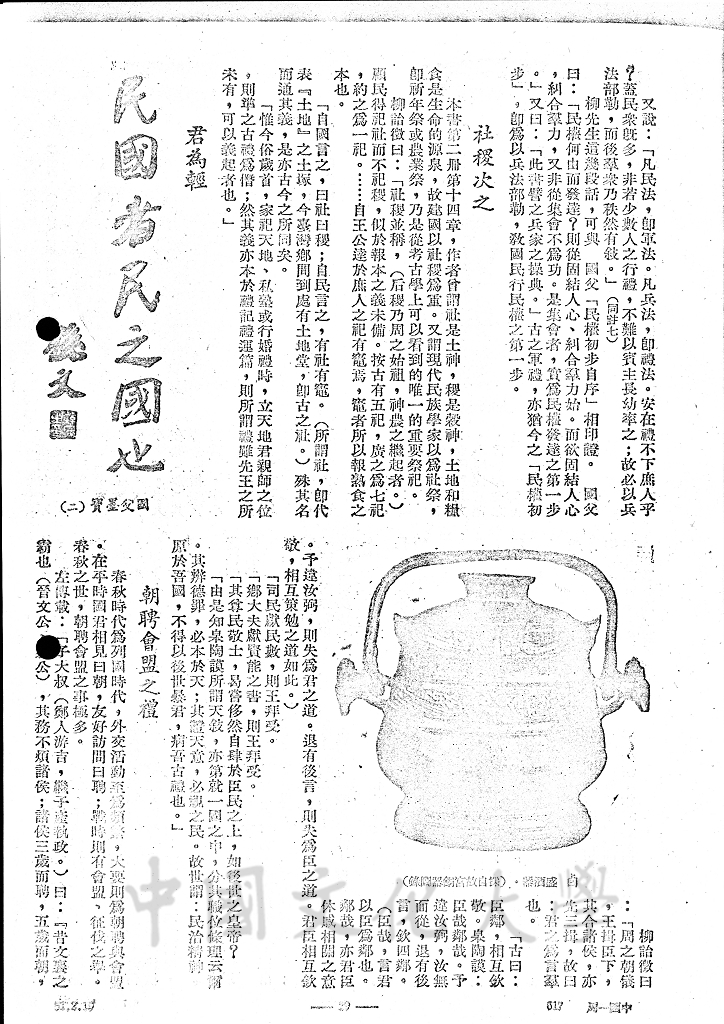 又說：「凡民法，卽軍法。凡兵法，卽禮法。安在禮不下庶人乎
？蓋民衆旣多，非若少數人之行禮，不難以賓主長幼率之；故必以兵
法部勒，而後羣衆乃秩然有敍。」（同註七）
柳先生這幾段話，可與　國父「民權初步自序」相印證。　國父
曰：「民權何由而發達？則從固結人心、糾合羣力始。而欲固結人心
，糾合羣力，又非從集會不爲功。是集會者，實爲民權發達之第一步
。」又曰：「此書譬之兵家之操典。」古之軍禮，亦猶今之「民權初
步」，卽爲以兵法部勒，敎國民行民權之第一步。
社稷次之
本書第二册第十四章，作者曾謂社是土神，稷是穀神，土地和糧
食是生命的源泉，故建國以社稷爲重。又謂現代民族學家以爲社祭，
卽祈年祭或農業祭，乃是從考古學上可以看到的唯一的重要祭祀。
柳詒徵曰：「社稷並稱，（后稷乃周之始祖，神農之繼起者。）
顧民得祀社而不祀稷，似於報本之義未備。按古有五祀，廣之爲七祀
，約之爲一祀。……自王公達於庶人之祀有竈焉，竈者所以報熟食之
本也。
「自國言之，曰社曰稷；自民言之，有社有竈。（所謂社，卽代
表『土地』之土塚，今臺灣鄉間到處有土地堂，卽古之社。）殊其名
而通其義，是亦古今之所同矣。
「惟今俗歲首，家祀天地、私塾或行婚禮時，立天地君親師之位
，則準之古禮爲僭；然其義亦本於禮記禮運篇，則所謂禮雖先王之所
未有，可以義起者也。」
君為輕
民國者民之國也
孫文
國父墨寶（二）
盛酒器。（採自故宮銅器圖錄）
柳詒徵曰
：「周之朝儀
，王揖臣下，
其合諸侯，亦
先三揖，故曰
：君之爲言羣
也。
「古曰：
臣鄰，相互欽
敬。臯陶謨：
臣哉鄰哉。予
違汝弼，汝無
面從，退有後
言，欽四鄰。
（臣哉，言君
以臣爲鄰也。
鄰哉，亦君臣
休戚相關之意
。予違汝弼，則失爲君之道。退有後言，則失爲臣之道。君臣相互欽
敬，相互策勉之道如此。）
「司民獻民數，則王拜受。
「鄉大夫獻賢能之書，則王拜受。
「其尊民敬士，曷嘗侈然自肆於臣民之上，如後世之皇帝？
「由是知臯陶謨所謂天敍，亦第就一國之中，分其職位條理云爾
。其辨德罪，必本於天；其證天意，必視之民。故世謂：民治精神
原於吾國，不得以後世暴君，病吾古禮也。」
朝聘會盟之禮
春秋時代爲列國時代，外交活動至爲頻繁，大要則爲朝聘與會盟
。在平時國君相見曰朝，友好訪問曰聘；戰時則有會盟、征伐之舉。
春秋之世，朝聘會盟之事極多。
左傳載：「子大叔（鄭人游吉，繼子產執政。）曰：『昔文襄之
霸也（晉文公、公），其務不煩諸侯；諸侯三歲而聘，五歲而朝，
—29—
617
中國一周